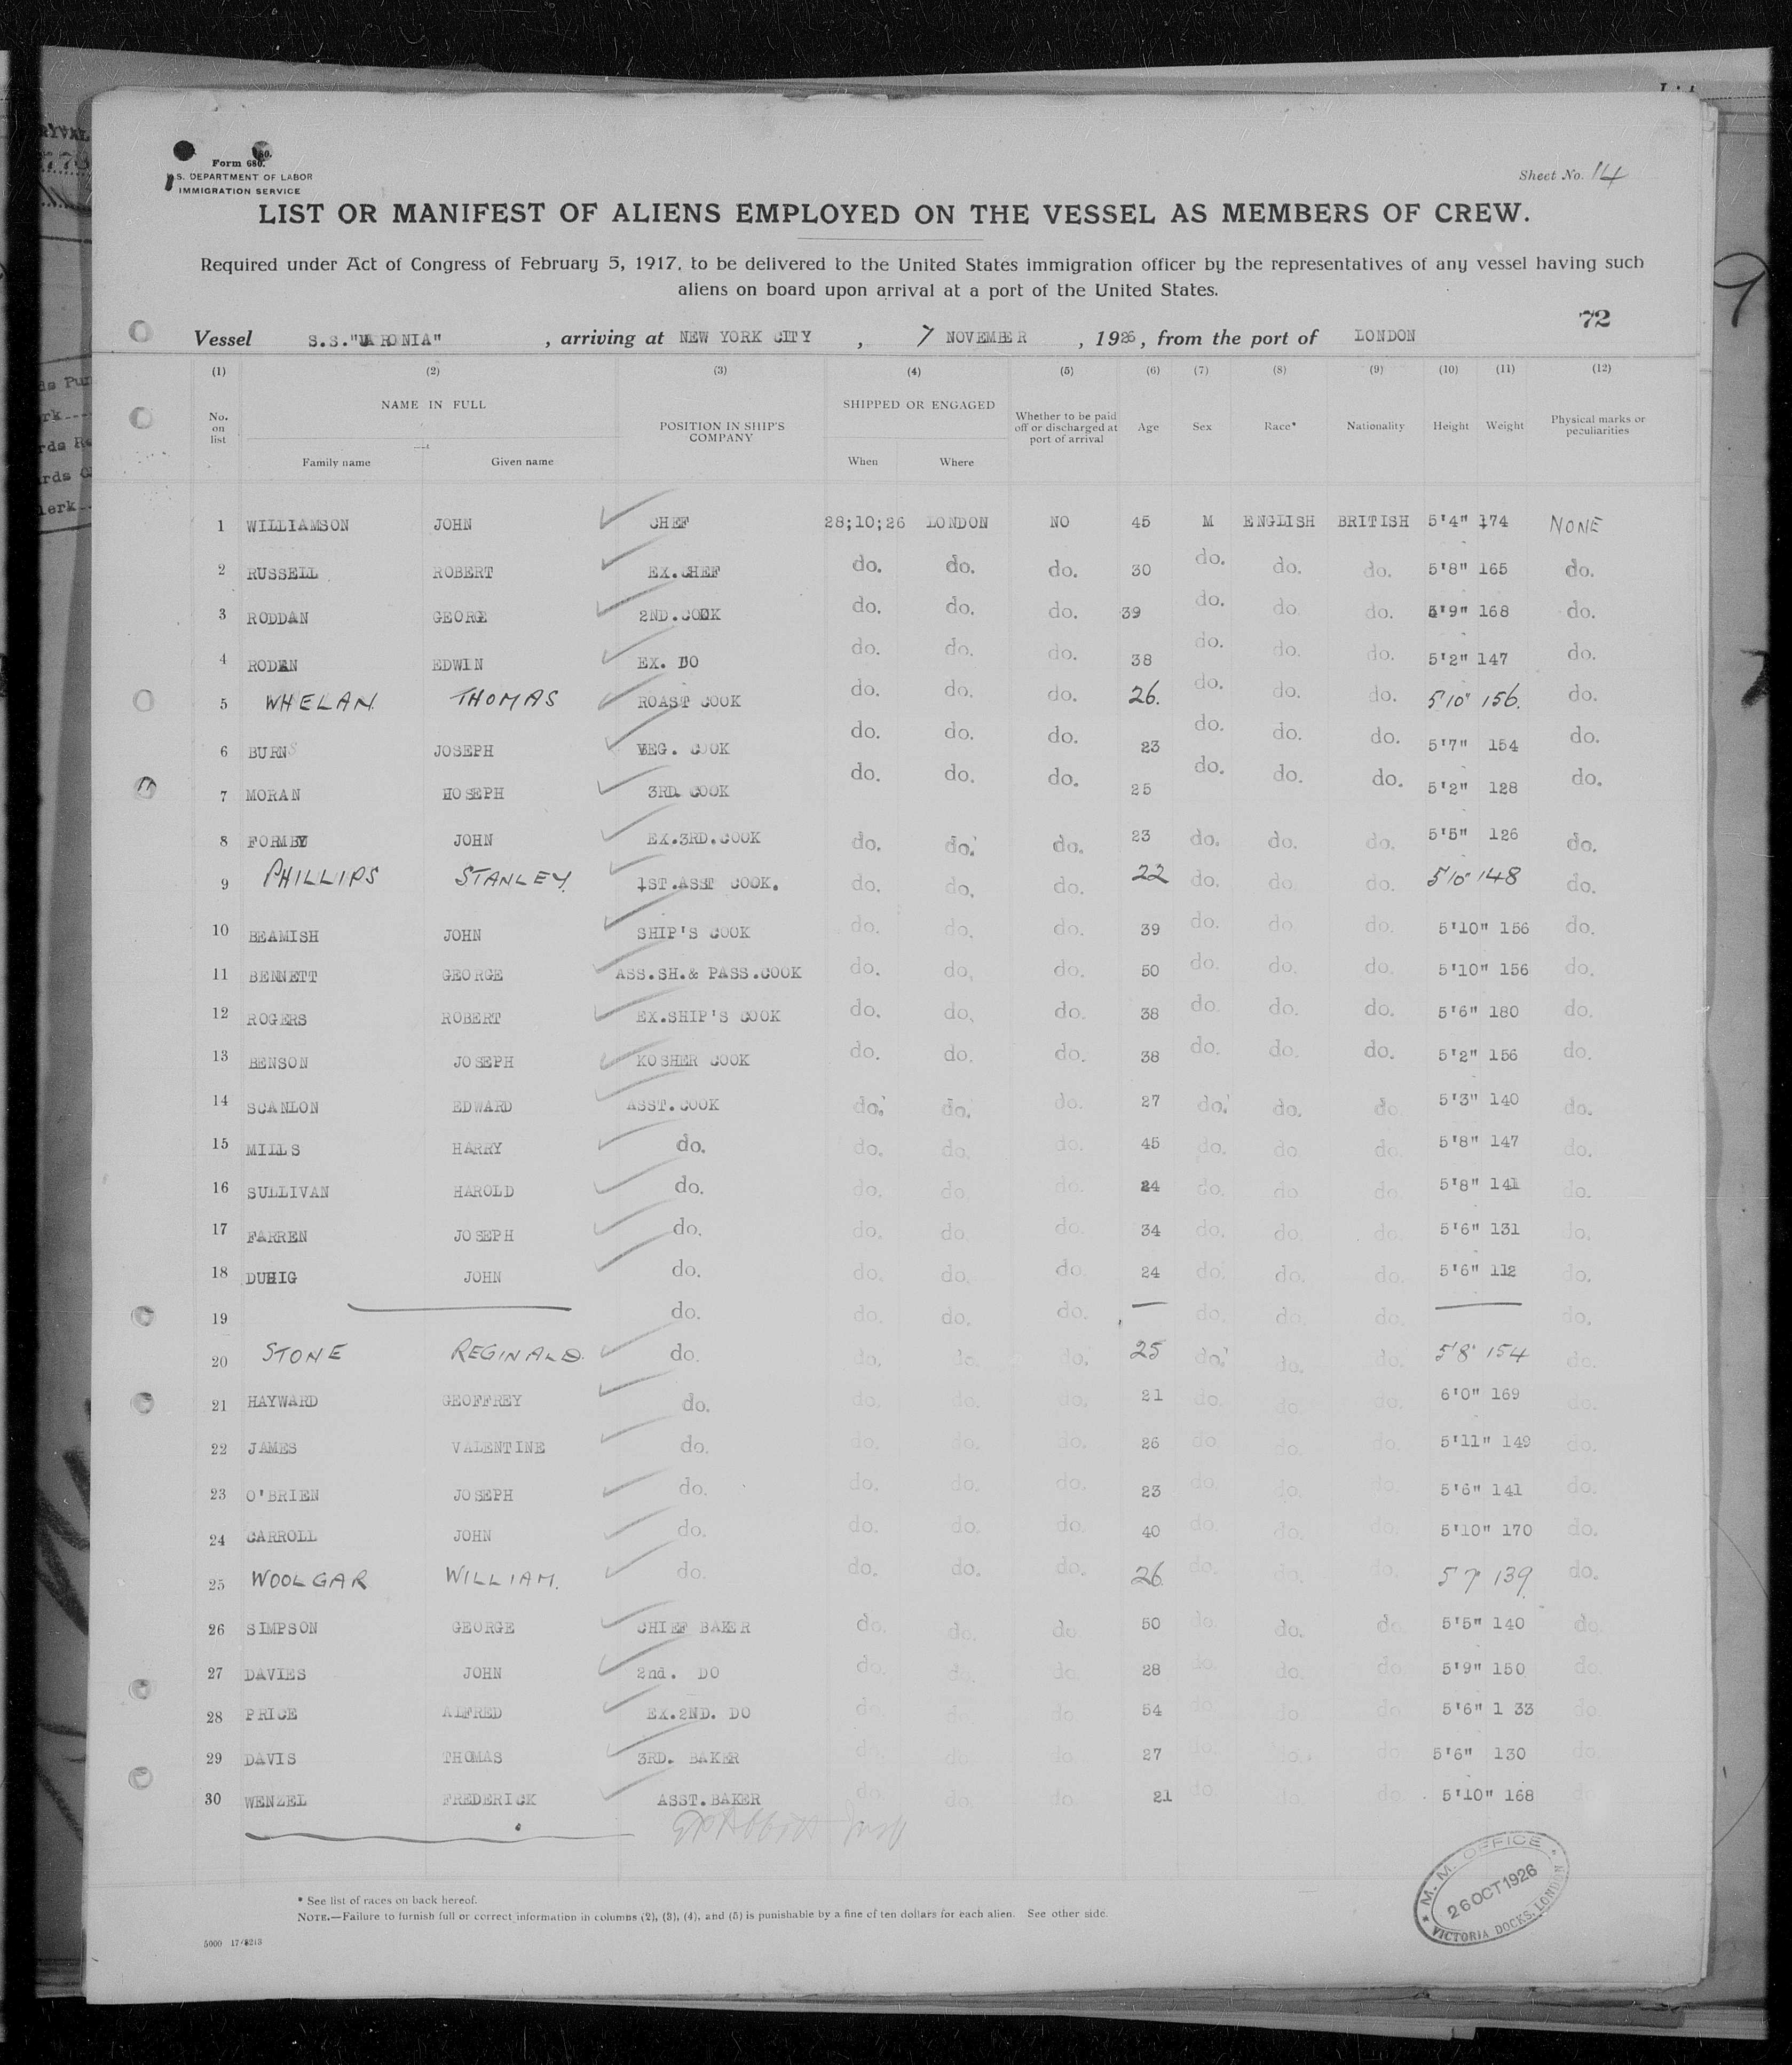 Form 680.
S. DEPARTMENT OF LABOR
IMMIGRATION SERVICE
Sheet No. 14
LIST OR MANIFEST OF ALIENS EMPLOYED ON THE VESSEL AS MEMBERS OF CREW.
Required under Act of Congress of February 5, 1917, to be delivered to the United States immigration officer by the representatives of any vessel having such
aliens on board upon arrival at a port of the United States.
72
Vessel S.S. , arriving at NEW YORK CITY , 7 NOVEMBER , 1926, from the port of LONDON
(1) (2) (3) (4) (5) (6) (7) (8) (9) (10) (11) (12)
No. on list NAME IN FULL Family name Given name POSITION IN SHIP'S COMPANY SHIPPED OR ENGAGED When Where Whether to be paid off or discharged at port of arrival Age Sex Race* Nationality Height Weight Physical marks or peculiarities
1 WILLIAMSON JOHN CHEF 28;10;26 LONDON NO 45 M ENGLISH BRITISH 5'4" 174 NONE
2 RUSSELL ROBERT EX.CHEF do. do. do. 30 do. do. do. 5'8" 165 do.
3 RODDAN GEORGE 2ND.COOK do. do. do. 39 do. do. do. 5'9" 168 do.
4 RODEN EDWIN EX. DO do. do. do. 38 do. do. do. 5'2" 147 do.
5 WHELAN THOMAS ROAST COOK do. do. do. 26. do. do. do. 5'10" 156. do.
6 BURNS JOSEPH VEG. COOK do. do. do. 23 do. do. do. 5'7" 154 do.
7 MORAN JOSEPH 3RD. COOK do. do. do. 25 do. do. do. 5'2" 128 do.
8 FORMBY JOHN EX.3RD.COOK do. do. do. 23 do. do. do. 5'5" 126 do.
9 PHILLIPS STANLEY. 1ST.ASST COOK. do. do. do. 22 do. do. do. 5'10" 148 do.
10 BEAMISH JOHN SHIP'S COOK do. do. do. 39 do. do. do. 5'10" 156 do.
11 BENNETT GEORGE ASS.SH.& PASS.COOK do. do. do. 50 do. do. do. 5'10" 156 do.
12 ROGERS ROBERT EX.SHIP'S COOK do. do. do. 38 do. do. do. 5'6" 180 do.
13 BENSON JOSEPH KOSHER COOK do. do. do. 38 do. do. do. 5'2" 156 do.
14 SCANLON EDWARD ASST.COOK do. do. do. 27 do. do. do. 5'3" 140 do.
15 MILLS HARRY do. do. do. do. 45 do. do. do. 5'8" 147 do.
16 SULLIVAN HAROLD do. do. do. do. 24 do. do. do. 5'8" 141 do.
17 FARREN JOSEPH do. do. do. do. 34 do. do. do. 5'6" 131 do.
18 DUHIG JOHN do. do. do. do. 24 do. do. do. 5'6" 112 do.
19 do. do. do. do. do. do. do. do.
20 STONE REGINALD. do. do. do. do. 25 do. do. do. 5'8" 154 do.
21 HAYWARD GEOFFREY do. do. do. do. 21 do. do. do. 6'0" 169 do.
22 JAMES VALENTINE do. do. do. do. 26 do. do. do. 5'11" 149 do.
23 O'BRIEN JOSEPH do. do. do. do. 23 do. do. do. 5'6" 141 do.
24 CARROLL JOHN do. do. do. do. 40 do. do. do. 5'10" 170 do.
25 WOOLGAR WILLIAM. do. do. do. do. 26. do. do. do. 5 7 139 do.
26 SIMPSON GEORGE CHIEF BAKER do. do. do. 50 do. do. do. 5'5" 140 do.
27 DAVIES JOHN 2nd. DO do. do. do. 28 do. do. do. 5'9" 150 do.
28 PRICE ALFRED EX.2ND. DO do. do. do. 54 do. do. do. 5'6" 1 33 do.
29 DAVIS THOMAS 3RD. BAKER do. do. do. 27 do. do. do. 5'6" 130 do.
30 WENZEL FREDERICK ASST.BAKER do. do. do. 21 do. do. do. 5'10" 168 do.
M. M. OFFICE
26 OCT 1926
VICTORIA DOCKS, LONDON
* See list of races on back hereof.
NOTE.—Failure to furnish full or correct information in columns (2), (3), (4), and (5) is punishable by a fine of ten dollars for each alien. See other side.